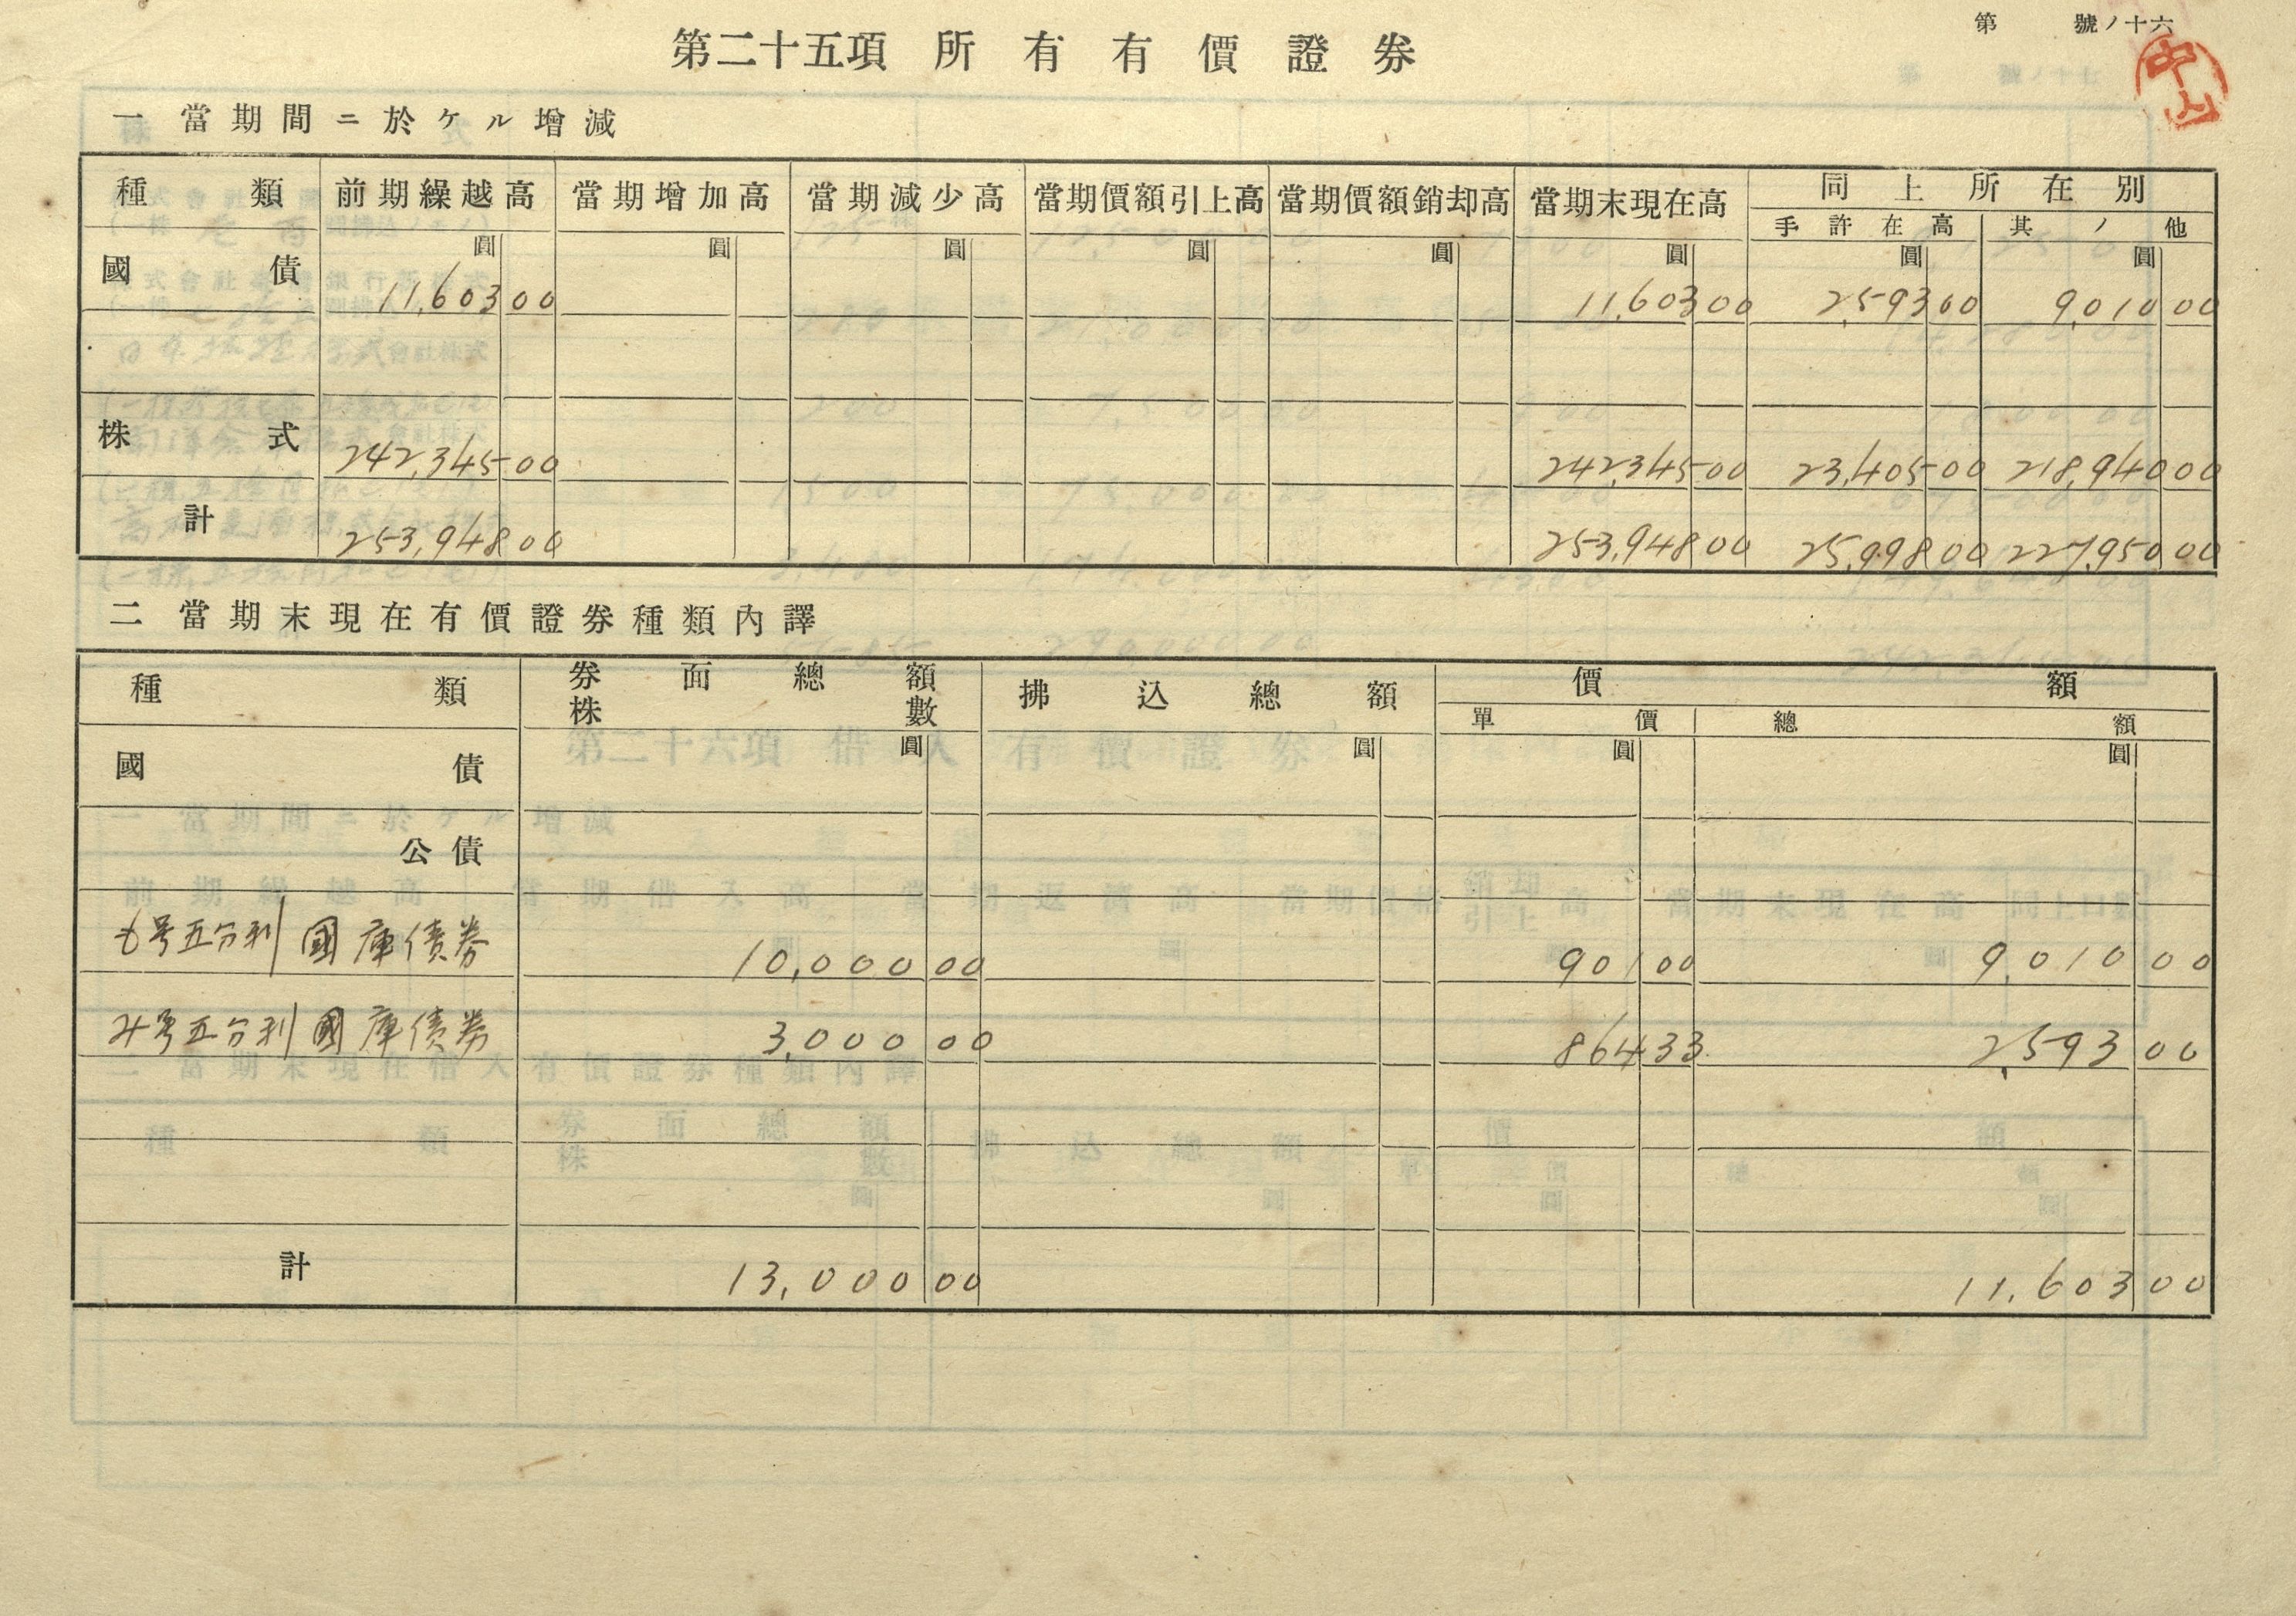 第　號ノ十六
中山
第二十五項 所有有價證券
一 當期間ニ於ケル增減
種類 前期繰越高 當期增加高 當期減少高 當期價額引上高 當期價額銷却高 當期末現在高 同上所在別
手許在高 其ノ他
圓 圓 圓 圓 圓 圓 圓 圓
國債 11,603 00 11,603 00 2,593 00 9,010 00
株式 242,345 00 242,345 00 23,405 00 218,940 00
計 253,948 00 253,948 00 25,998 00 227,950 00
二 當期末現在有價證券種類內譯
種類 券面總額 拂込總額 價額
株數 單價 總額
圓 圓 圓 圓
國債
公債
も号五分利 國庫債券 10,000 00 901 00 9,010 00
み号五分利 國庫債券 3,000 00 864 33 2,593 00
計 13,000 00 11,603 00